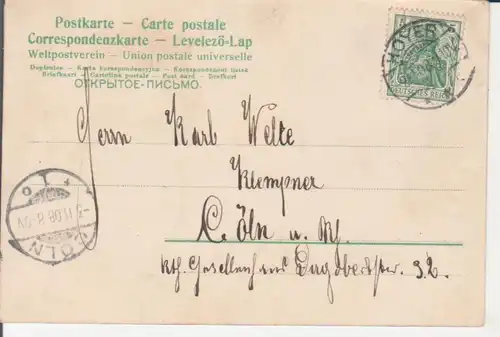 Postkarte — Carte postale
Correspondenzkarte — Levelező-Lap
Weltpostverein — Union postale universelle
Dopisnice — Karta korespondencyjna — Korespondenčni listek
Briefkaart — Cartolina postale — Post card — Brefkort
ОТКРЫТОЕ-ПИСЬМО.
HOYER
DEUTSCHES REICH
Herrn Karl Welte
Klempner
Cöln a. Rh.
Kth. Gesellenhaus Dagobertstr. 32.
CÖLN